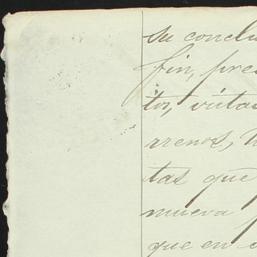 su conclu
fin, pres
itos, vista
rrenos, h
tas que
nueva
que en